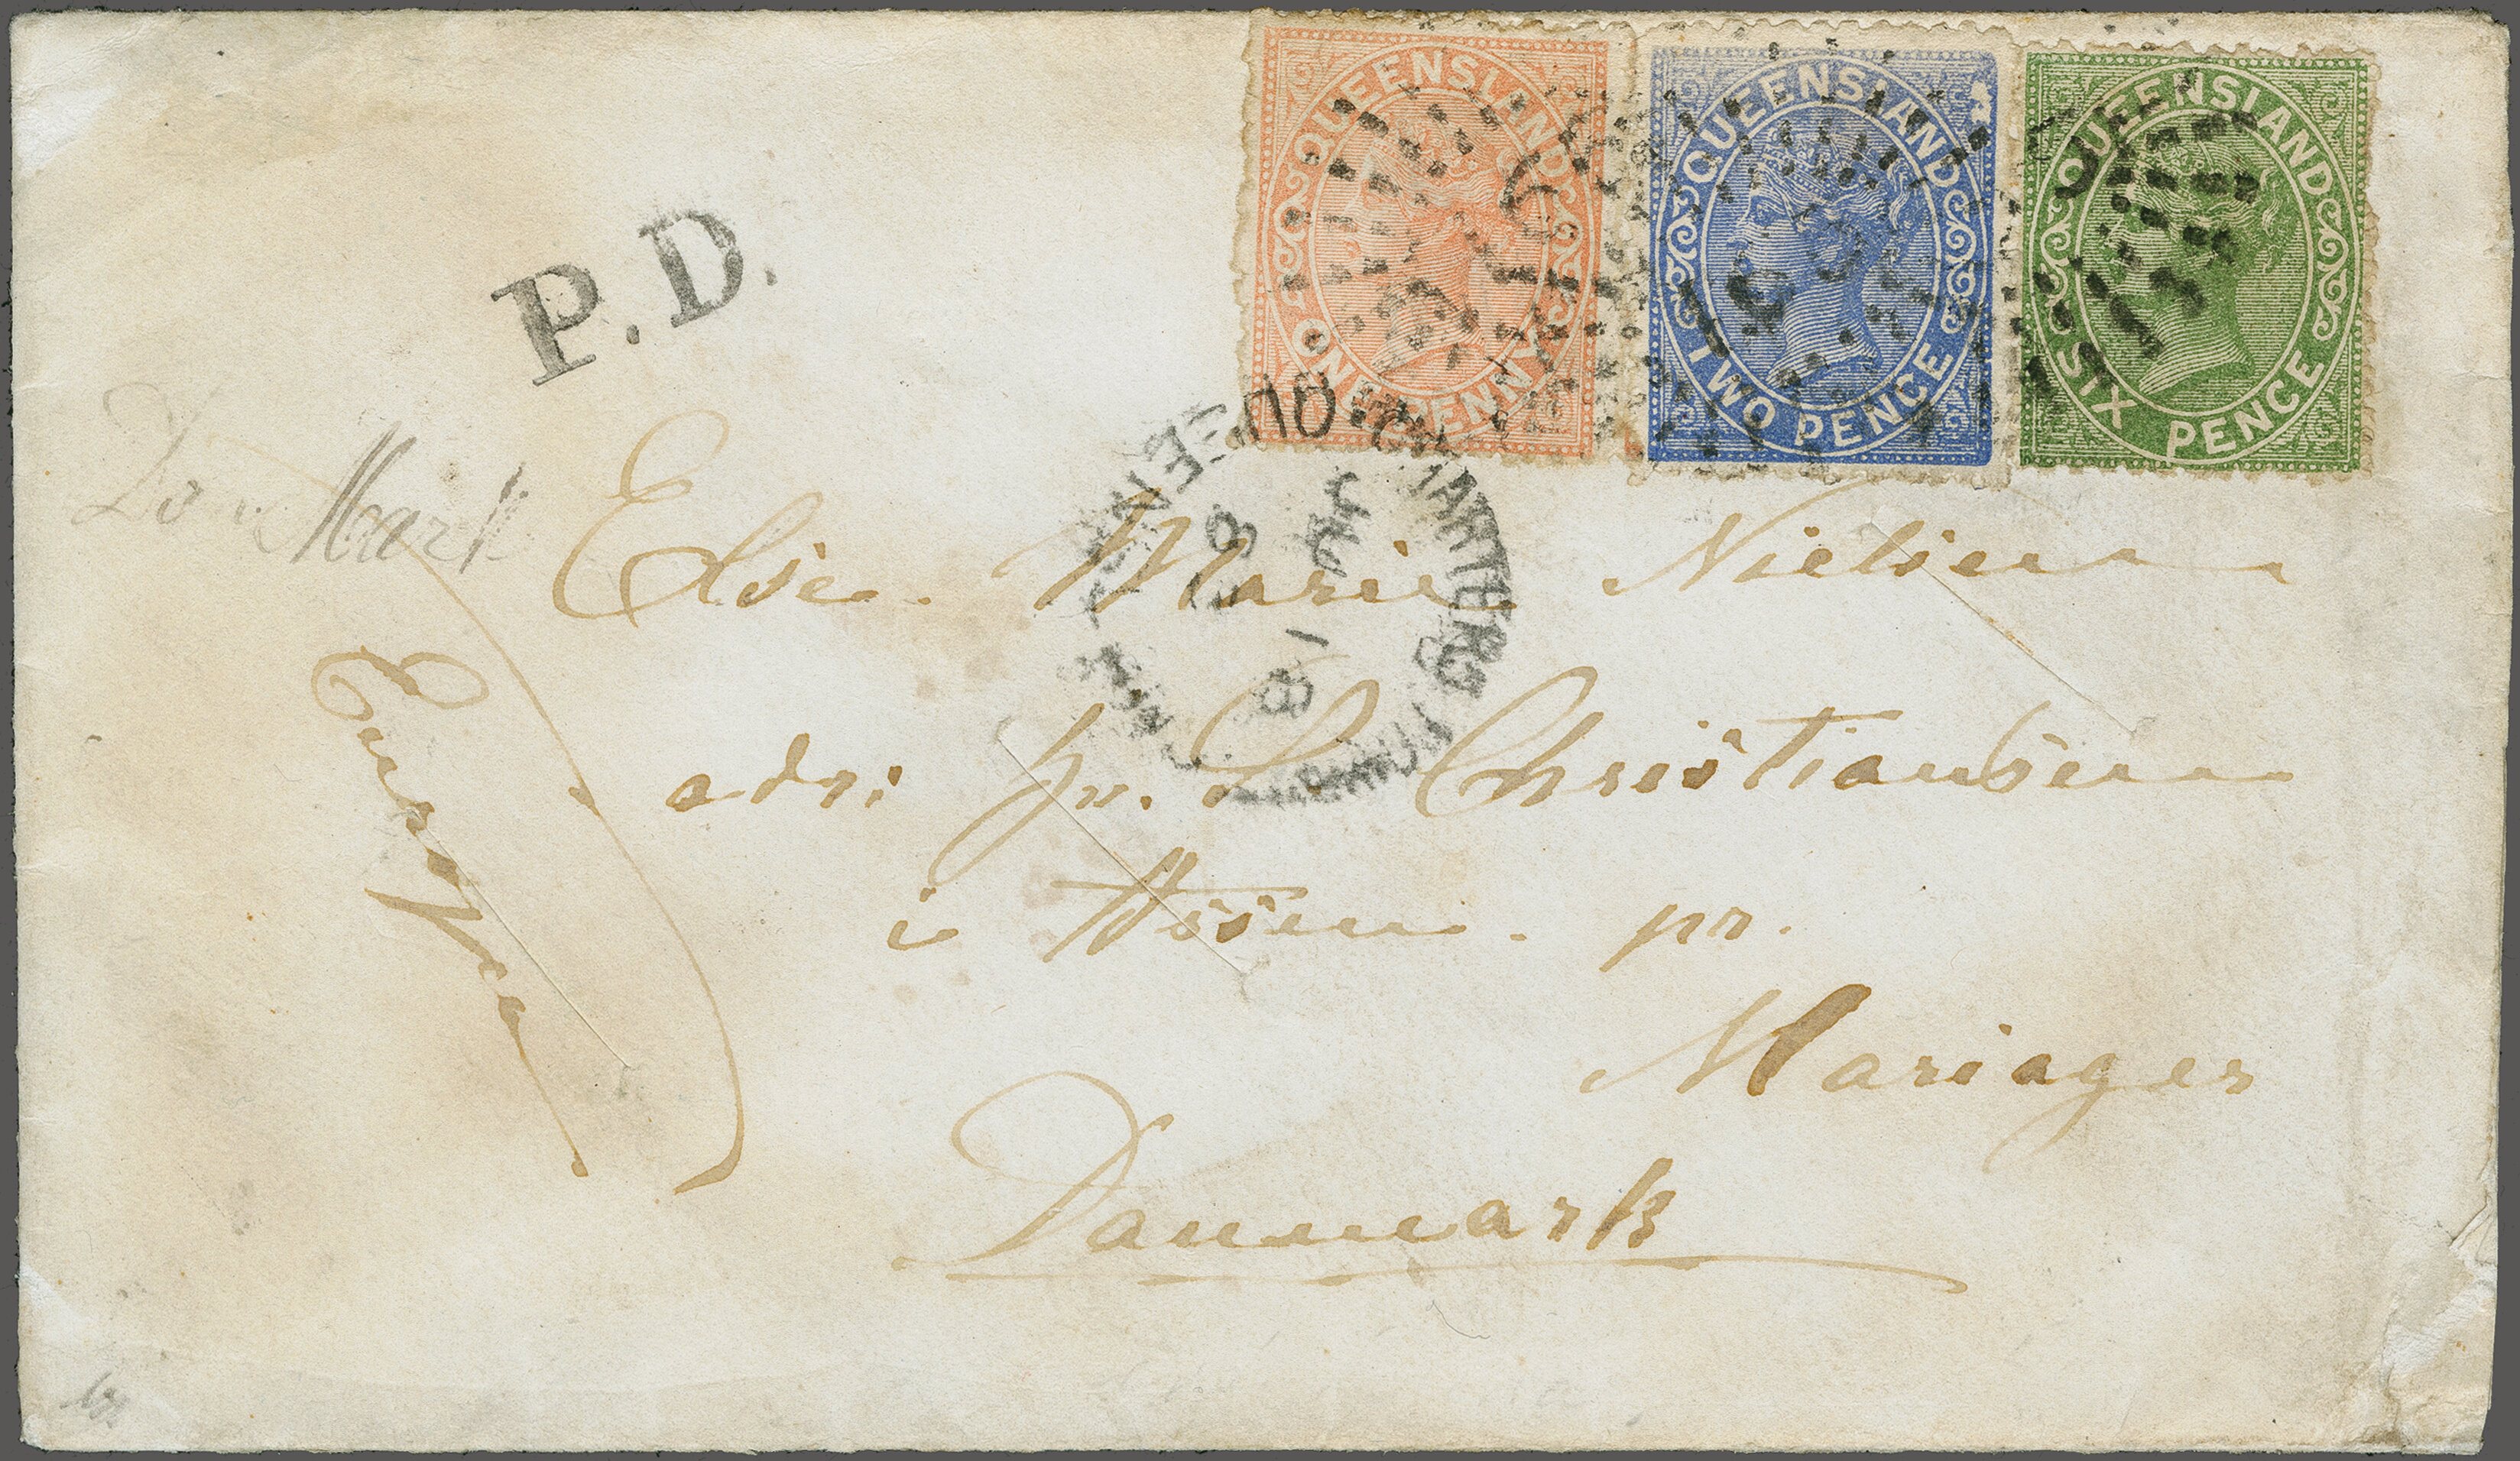 QUEENSLAND
ONE PENNY
QUEENSLAND
TWO PENCE
QUEENSLAND
SIX PENCE
P.D.
CHARTERS TOWERS
QUEENSLAND
Danmark
Else Marie Nielsen
adr: hr. S. Christiansen
i Assen pr.
Mariager
Danmark
Europa